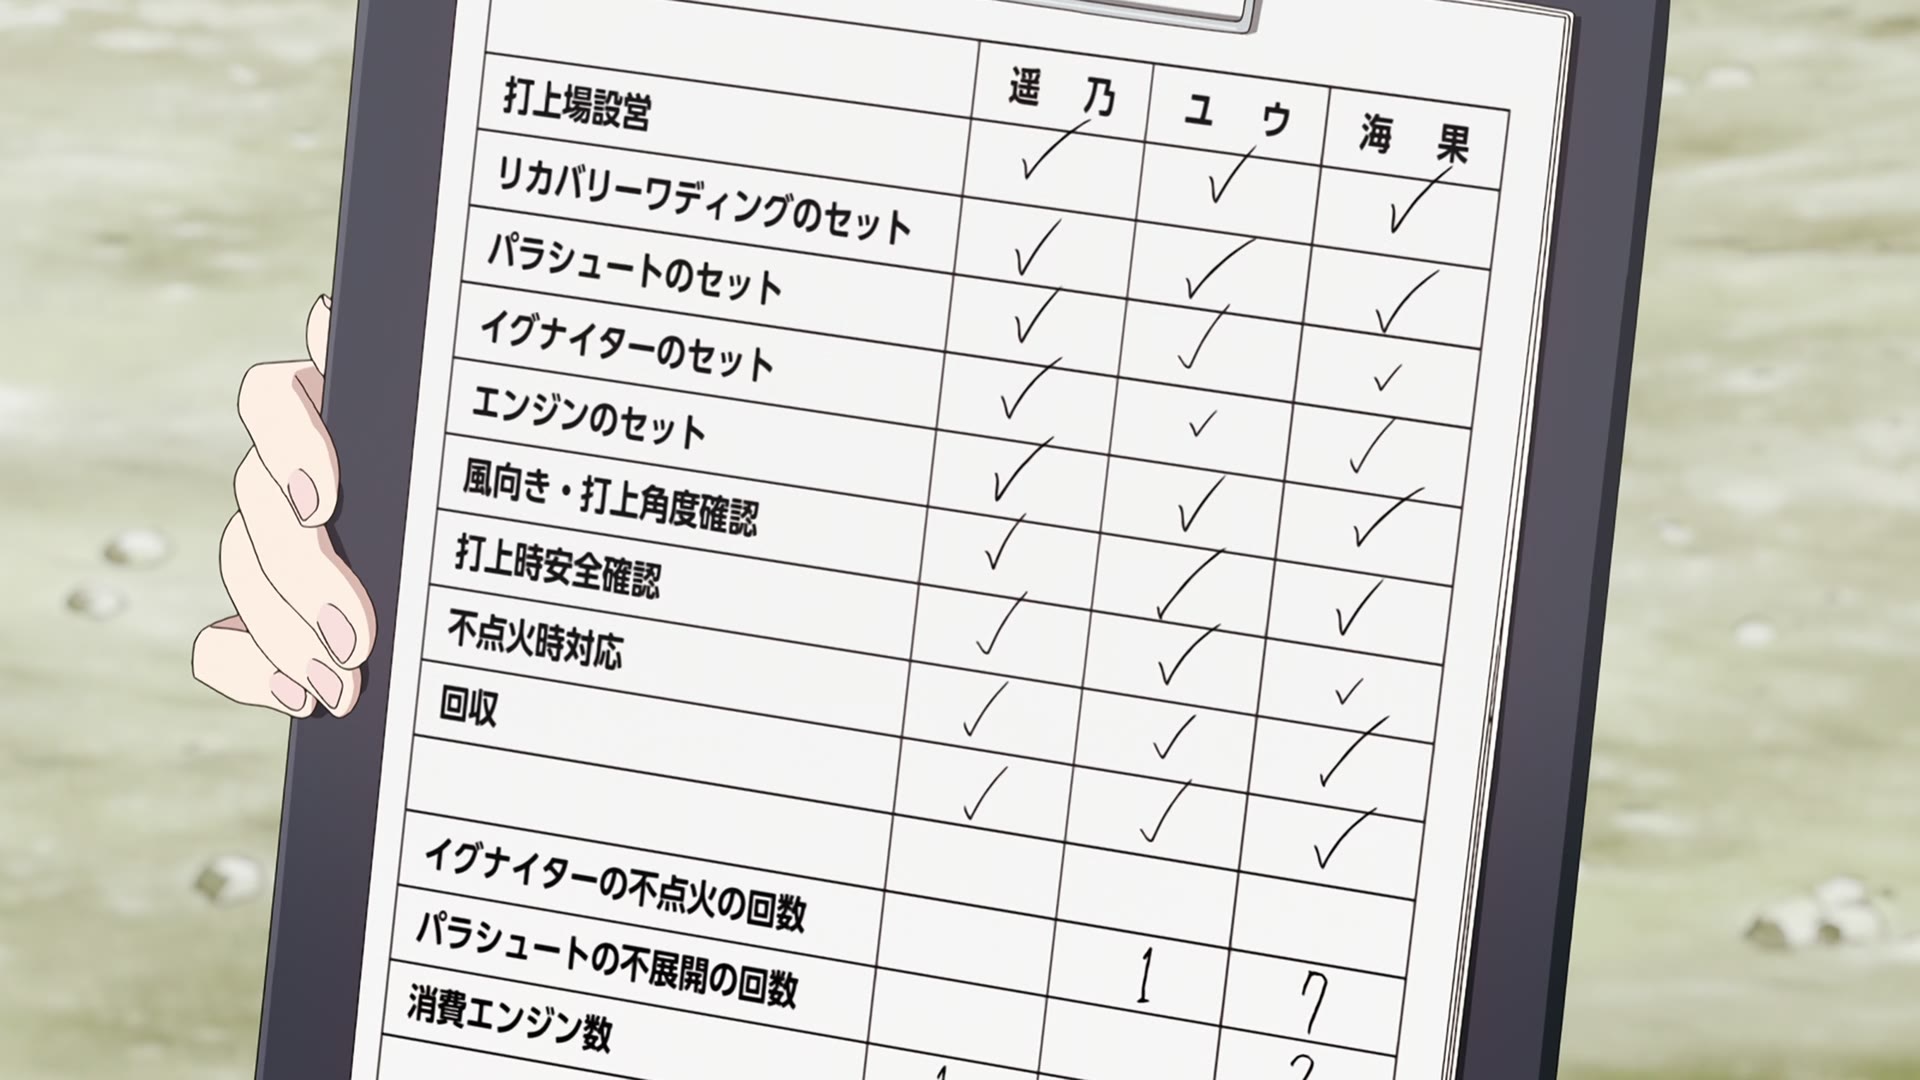 遥乃 ユウ 海果
打上場設営 ✓ ✓ ✓
リカバリーワディングのセット ✓ ✓ ✓
パラシュートのセット ✓ ✓ ✓
イグナイターのセット ✓ ✓ ✓
エンジンのセット ✓ ✓ ✓
風向き・打上角度確認 ✓ ✓ ✓
打上時安全確認 ✓ ✓ ✓
不点火時対応 ✓ ✓ ✓
回収 ✓ ✓ ✓
イグナイターの不点火の回数 1 7
パラシュートの不展開の回数
消費エンジン数